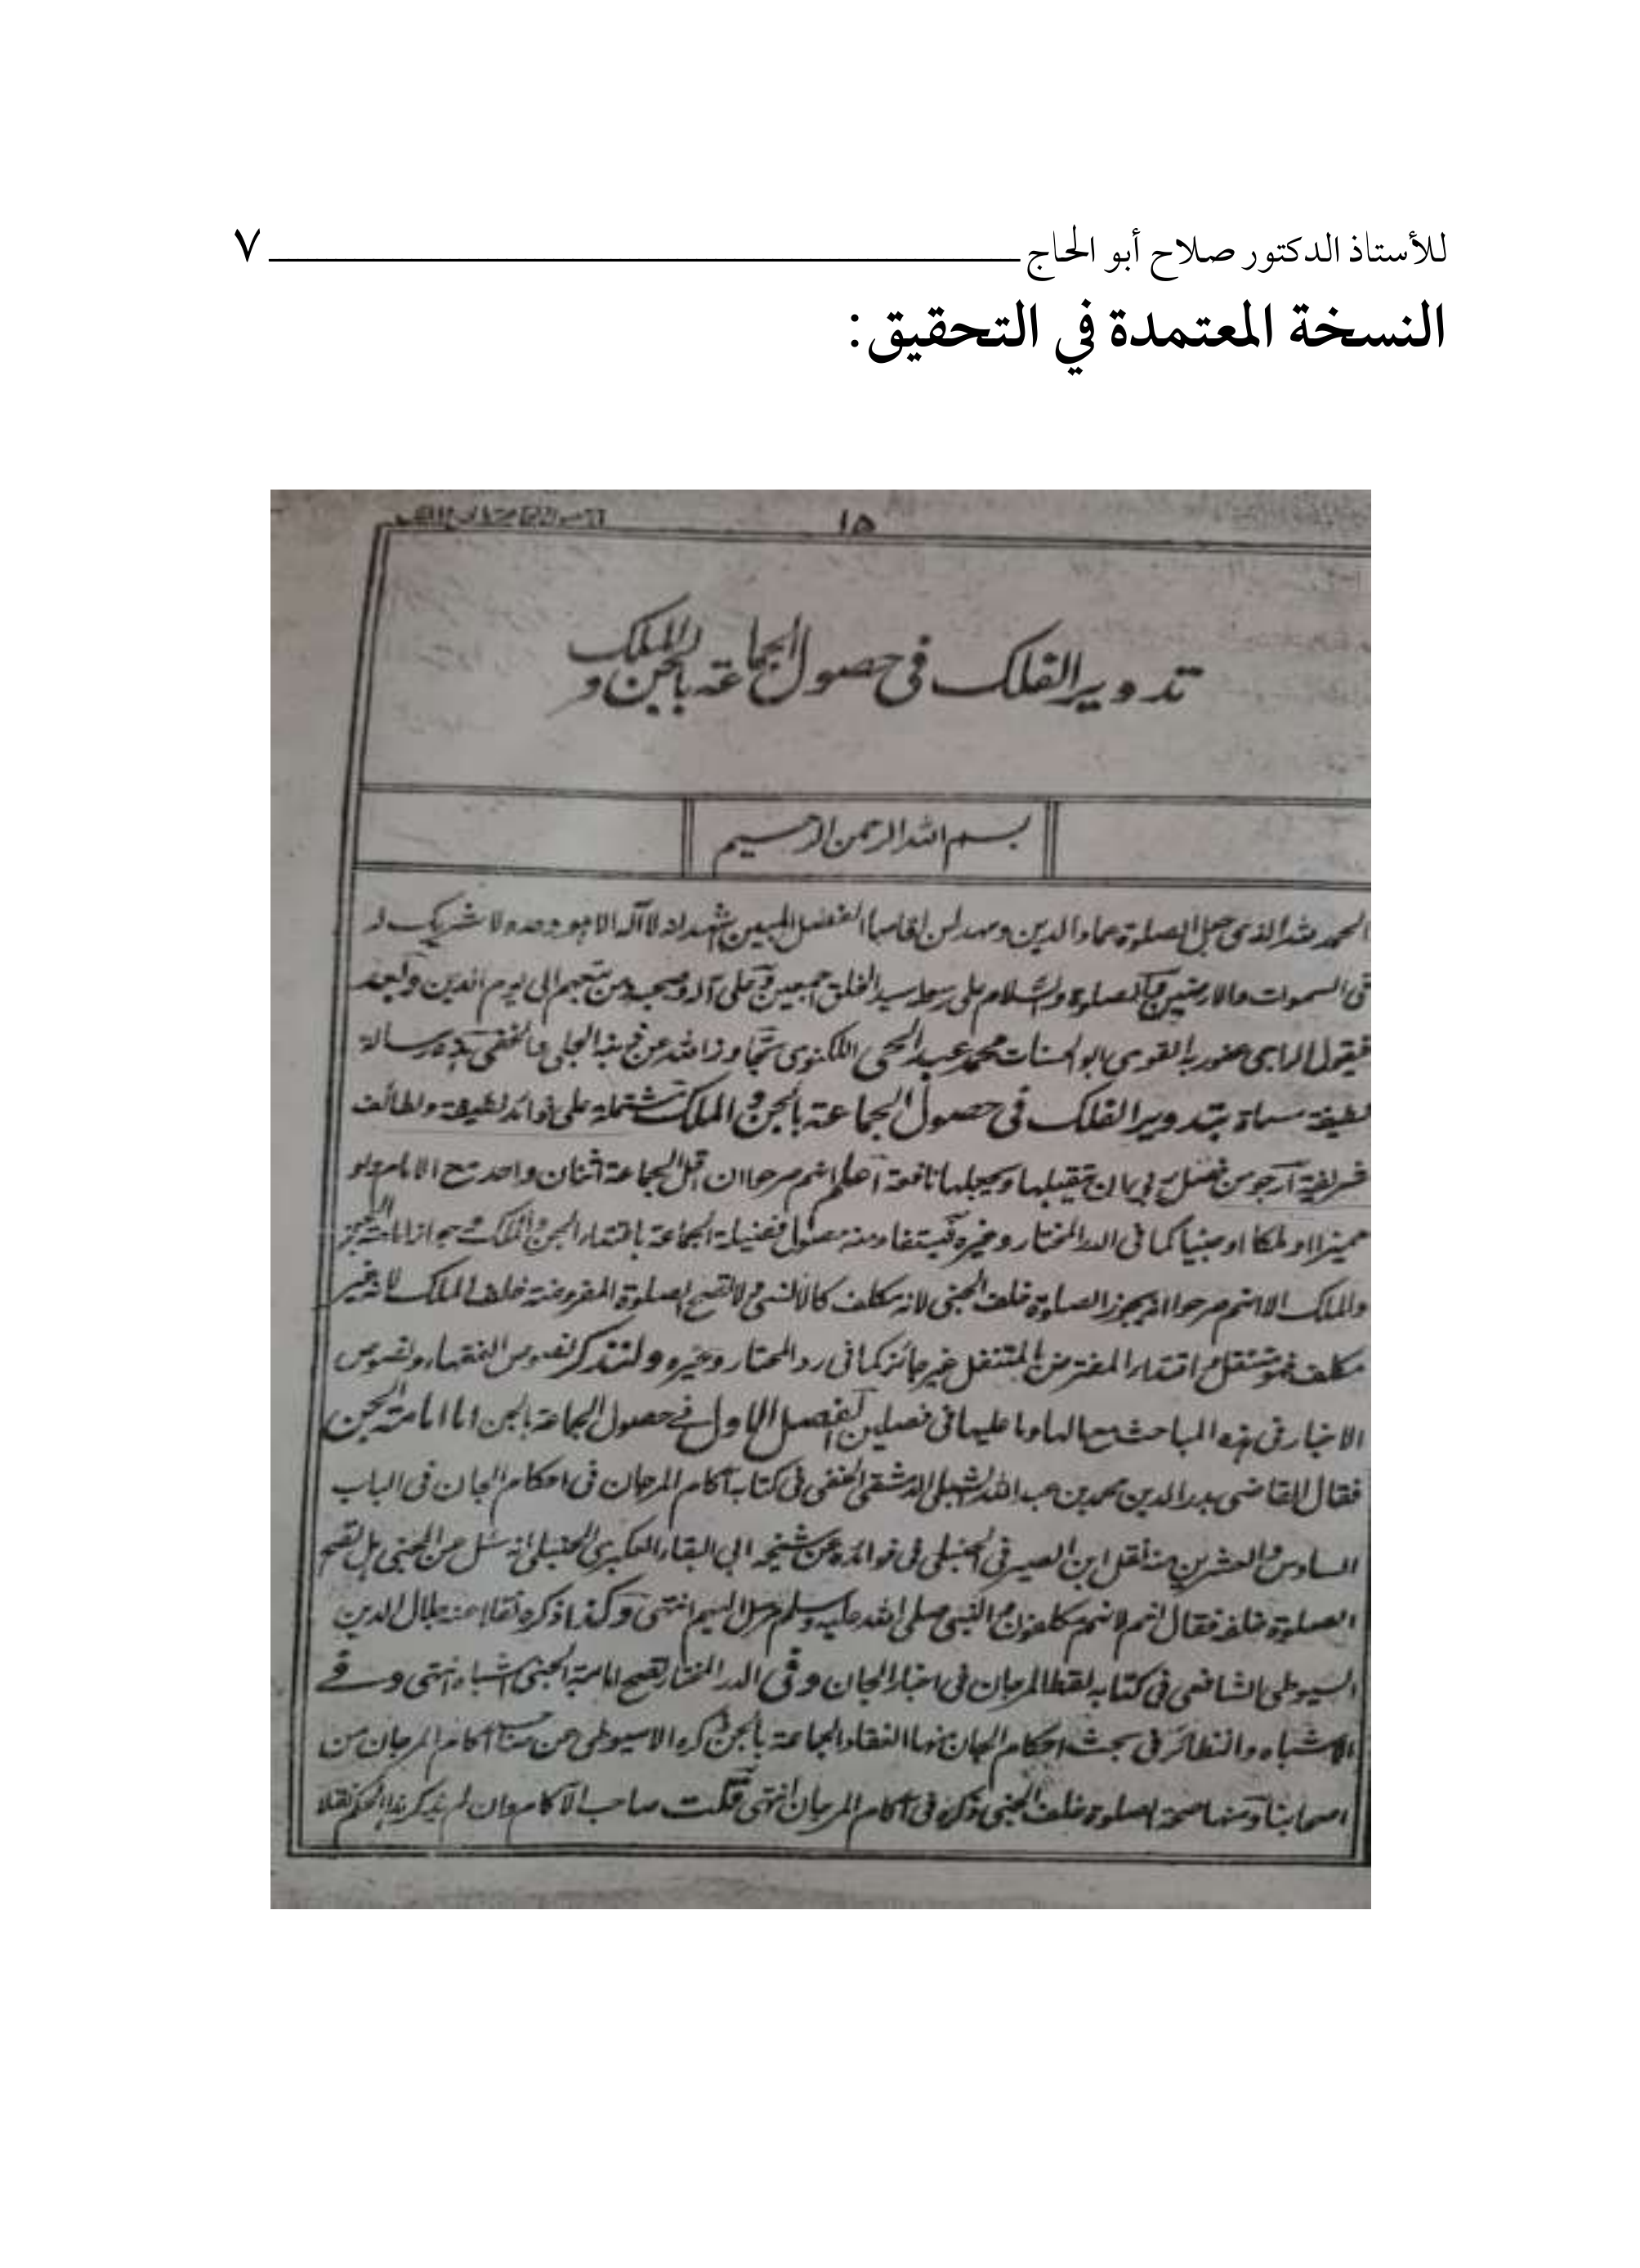 للأستاذ الدكتور صلاح أبو الحاج ٧
النسخة المعتمدة في التحقيق:
١٥
تدوير الفلک فی حصول الجماعة بالجن والملک
بسم الله الرحمن الرحيم
الحمد لله الذی جعل الصلوة عماد الدين ومهد لمن اقامها الفضل المبين اشهد انه لا آله الا هو وحده لا شريک له
فی السموات والارضين والصلوة والسلام علی رسوله سيد الخلق اجمعين وعلی آله وصحبه ومن تبعهم الی يوم الدين وبعد
فيقول الراجی عفو ربه القوی ابو الحسنات محمد عبد الحی اللکنوی تجاوز الله عن ذنبه الجلی والخفی هذه رسالة
لطيفة مسماة بتدوير الفلک فی حصول الجماعة بالجن والملک مشتملة علی فوائد لطيفة ولطائف
شريفة ارجو من فضل ربی ان يقبلها ويجعلها نافعة اعلم انهم صرحوا ان اقل الجماعة اثنان واحد مع الامام ولو
مميزا او ملکا او جنيا کما فی الدر المختار وغيره فيستفاد منه حصول فضيلة الجماعة باقتداء الجن والملک وجواز امامة الجن
والملک الا انهم صرحوا انه يجوز الصلوة خلف الجنی لانه مکلف کالانسی ولا تصح الصلوة المفروضة خلف الملک لانه غير
مکلف فهو متنفل واقتداء المفترض بالمتنفل غير جائز کما فی رد المحتار وغيره ولنذکر نصوص الفقهاء ونصوص
الاخبار فی هذه المباحث مع مالها وما عليها فی فصلين الفصل الاول فی حصول الجماعة بالجن اما امامة الجن
فقال القاضی بدر الدين محمد بن عبد الله الشبلی الدمشقی الحنفی فی کتابه آکام المرجان فی احکام الجان فی الباب
السادس والعشرين منه نقل ابن الصيرفی الحنبلی فی فوائده عن شيخه ابی البقاء العکبری الحنبلی انه سئل عن الجنی هل تصح
الصلوة خلفه فقال نعم لانهم مکلفون والنبی صلی الله عليه وسلم مرسل اليهم انتهی وکذا ذکره نقلا عنه جلال الدين
السيوطی الشافعی فی کتابه لقط المرجان فی اخبار الجان وفی الدر المختار تصح امامة الجنی اشباه انتهی وفی
الاشباه والنظائر فی بحث احکام الجان منها انعقاد الجماعة بالجن ذکره الاسيوطی عن صاحب آکام المرجان من
اصحابنا ومنها صحة الصلوة خلف الجنی ذکره فی آکام المرجان انتهی قلت صاحب الآکام وان لم يذکر هذا الحکم نقلا